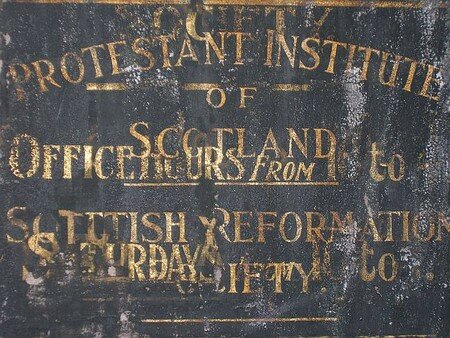 SOCIETY
PROTESTANT INSTITUTE
OF
SCOTLAND
OFFICE HOURS FROM 10 to
SCOTTISH REFORMATION
SATURDAY 10 to
SOCIETY